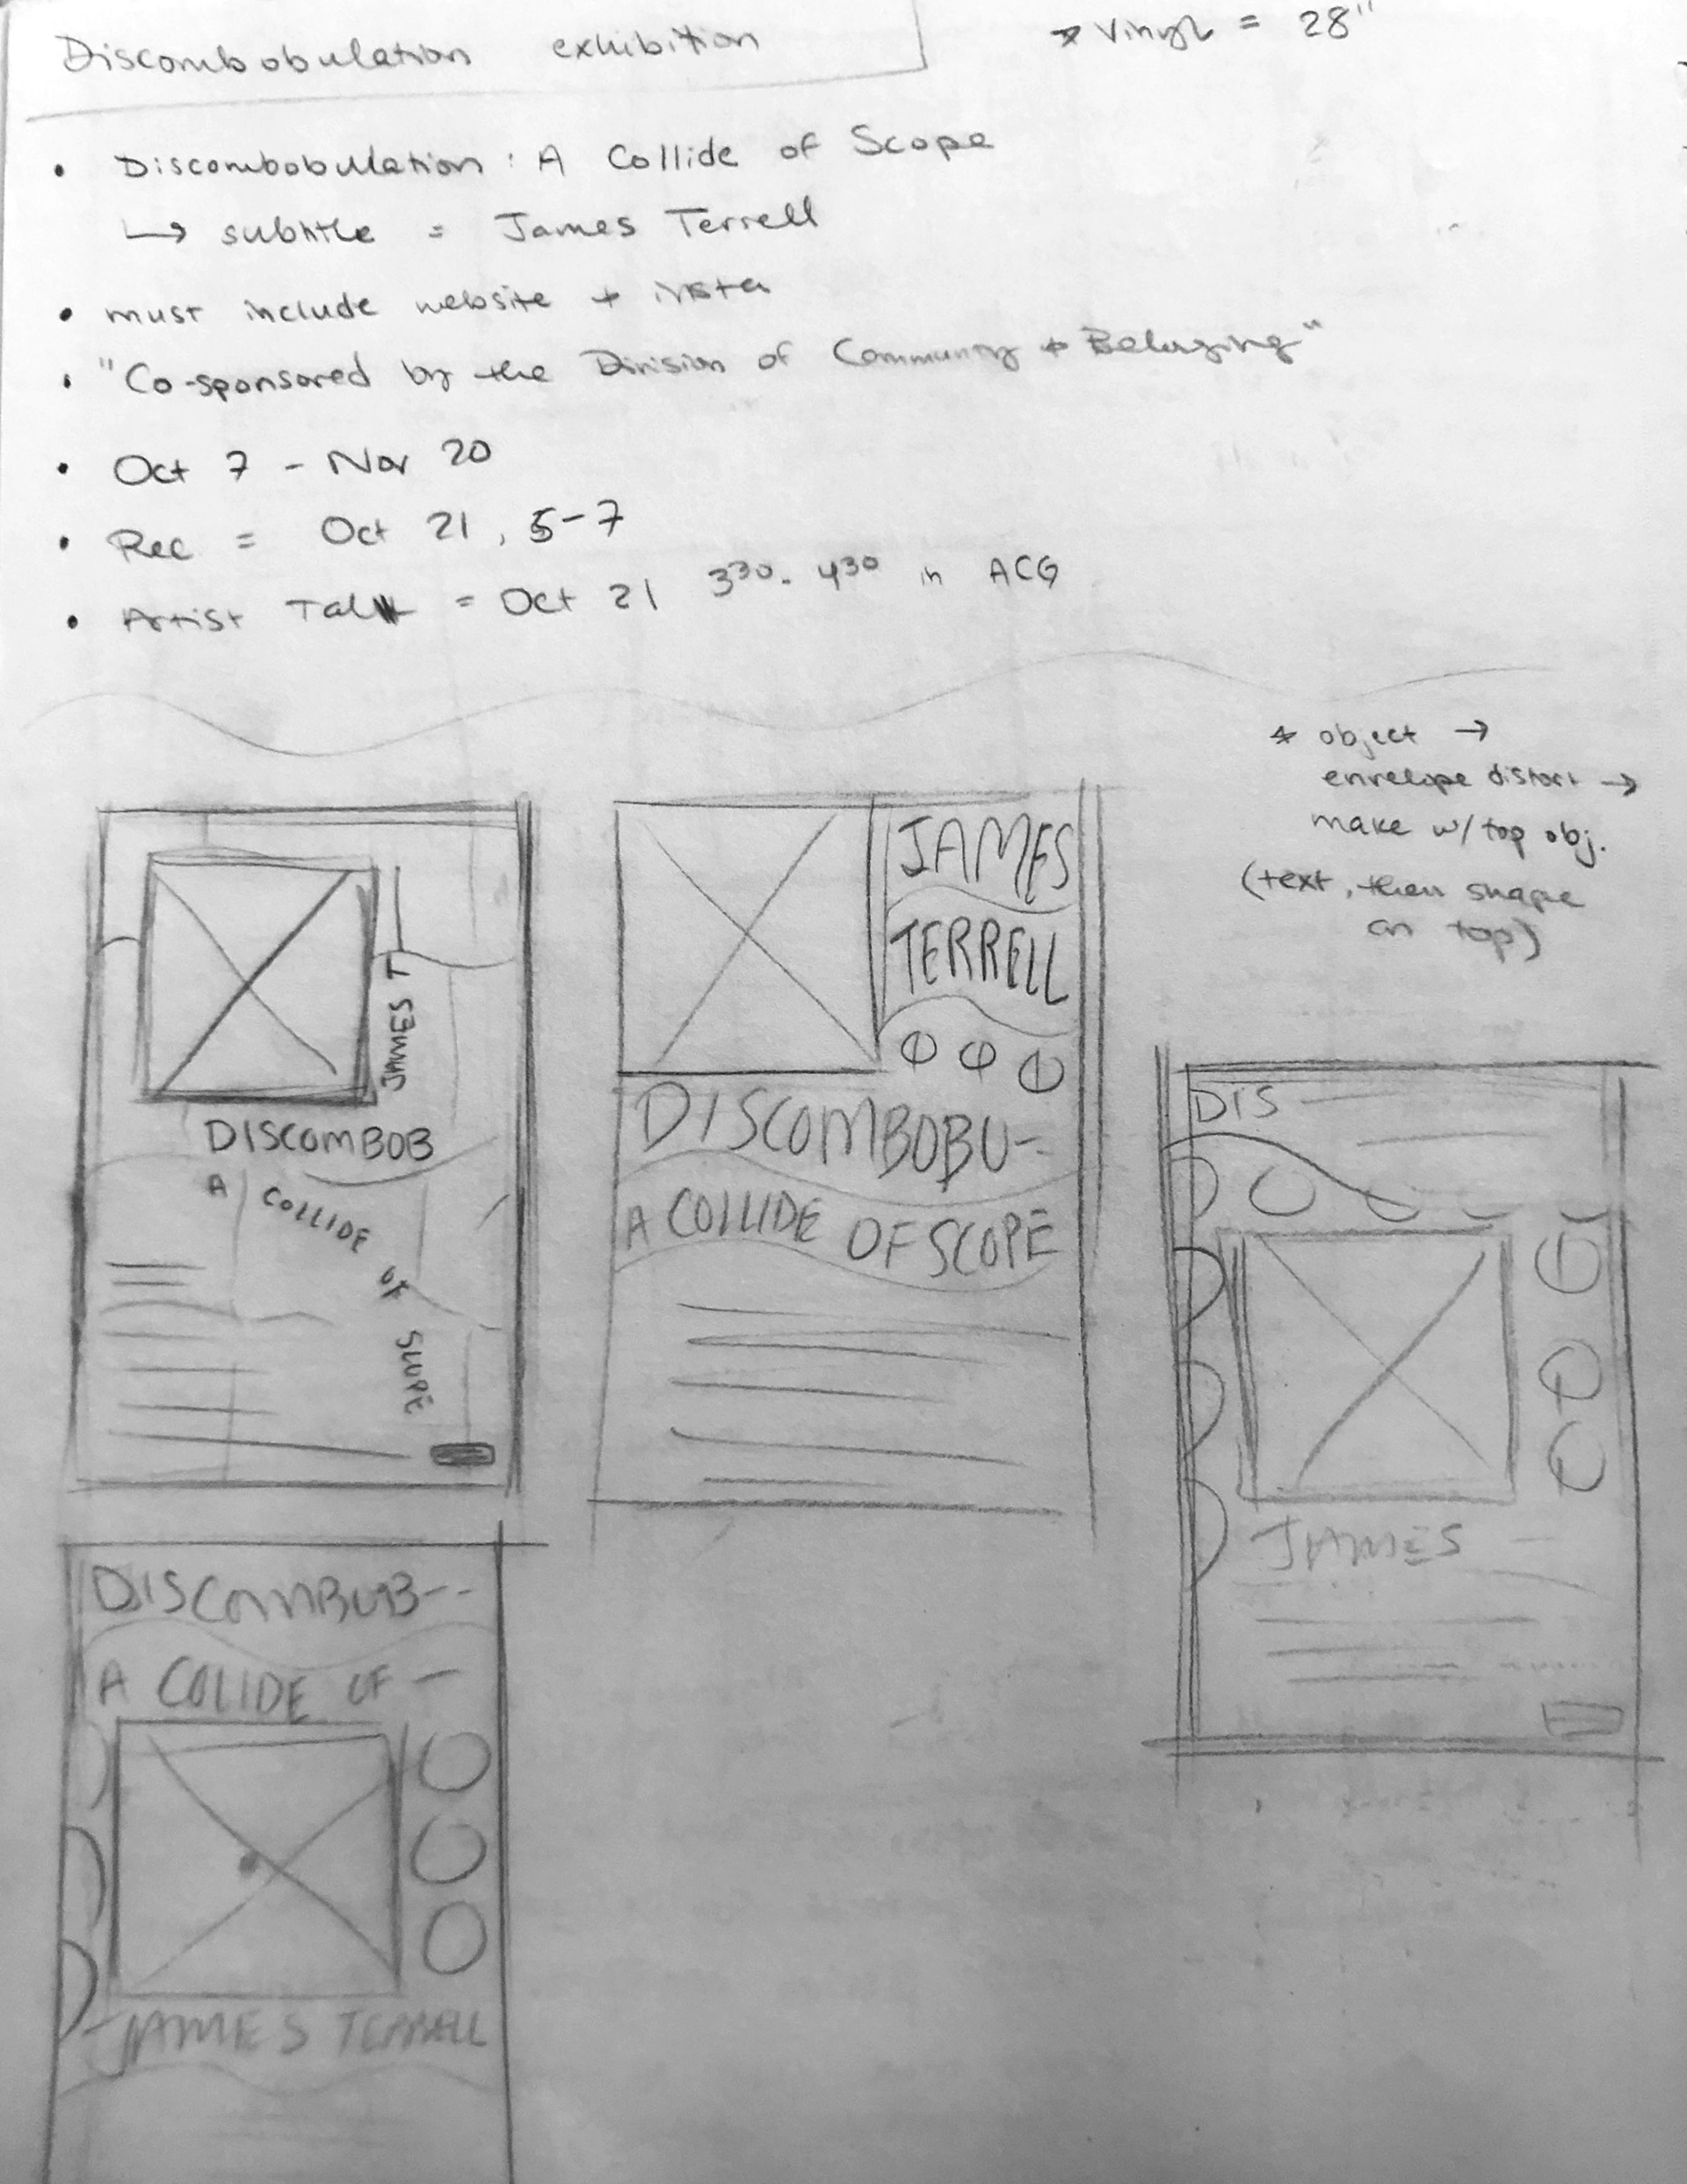 Discombobulation exhibition
* Vinyl = 28"
• Discombobulation : A Collide of Scope
↳ subtitle = James Terrell
• must include website + insta
• "Co-sponsored by the Division of Community + Belonging"
• Oct 7 - Nov 20
• Rec = Oct 21, 5-7
• Artist Talk = Oct 21 3³⁰- 4³⁰ in ACG
* object →
envelope distort →
make w/ top obj.
(text, then shape
on top)
JAMES T
DISCOMBOB
A COLLIDE OF SCOPE
JAMES
TERRELL
DISCOMBOBU-
A COLLIDE OF SCOPE
DIS
JAMES
DISCOMBOB--
A COLIDE OF -
JAMES TERRELL